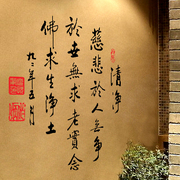 清净
慈悲於人无争
於世無求老實念
佛求生净土
九二年五月